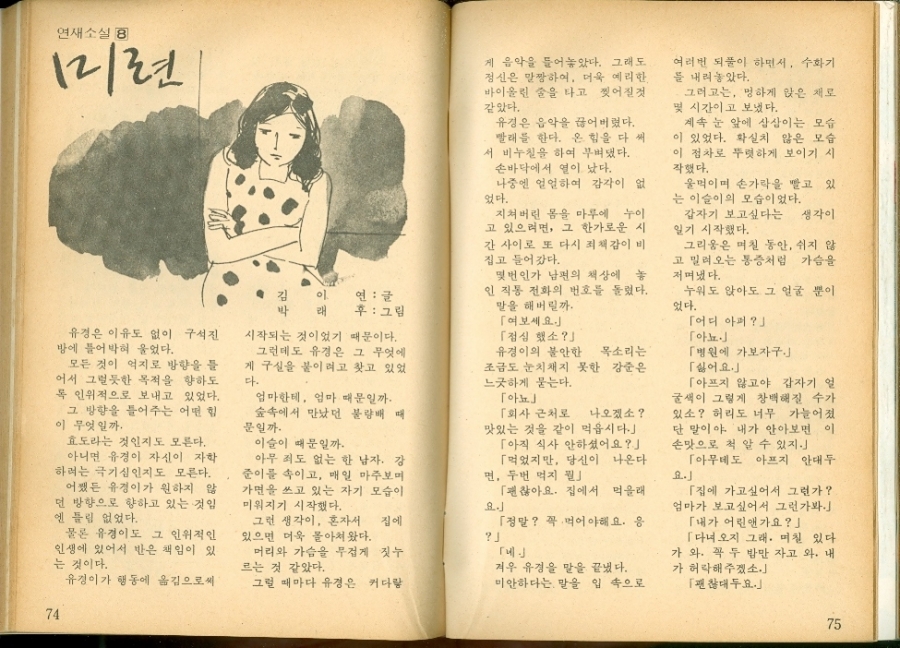 연재소설 8
미련
김이연:글
박래후:그림
유경은 이유도 없이 구석진
방에 틀어박혀 울었다.
모든 것이 억지로 방향을 틀
어서 그럴듯한 목적을 향하도
록 인위적으로 보내고 있었다.
그 방향을 틀어주는 어떤 힘
이 무엇일까.
효도라는 것인지도 모른다.
아니면 유경이 자신이 자학
하려는 극기심인지도 모른다.
어쨌든 유경이가 원하지 않
던 방향으로 향하고 있는 것임
엔 틀림 없었다.
물론 유경이도 그 인위적인
인생에 있어서 반은 책임이 있
는 것이다.
유경이가 행동에 옮김으로써
시작되는 것이었기 때문이다.
그런데도 유경은 그 무엇에
게 구실을 붙이려고 찾고 있었
다.
엄마한테, 엄마 때문일까.
숲속에서 만났던 불량배 때
문일까.
이슬이 때문일까.
아무 죄도 없는 한 남자. 강
준이를 속이고, 매일 마주보며
가면을 쓰고 있는 자기 모습이
미워지기 시작했다.
그런 생각이, 혼자서 집에
있으면 더욱 몰아쳐왔다.
머리와 가슴을 무겁게 짓누
르는 것 같았다.
그럴 때마다 유경은 커다랗
74
게 음악을 틀어놓았다. 그래도
정신은 말짱하여, 더욱 예리한
바이올린 줄을 타고 찢어질것
같았다.
유경은 음악을 끊어버렸다.
빨래를 한다. 온 힘을 다 써
서 비누칠을 하여 무벼댔다.
손바닥에서 열이 났다.
나중엔 얼얼하여 감각이 없
었다.
지쳐버린 몸을 마루에 누이
고 있으려면, 그 한가로운 시
간 사이로 또 다시 죄책감이 비
집고 들어갔다.
몇번인가 남편의 책상에 놓
인 직통 전화의 번호를 돌렸다.
말을 해버릴까.
「여보세요.」
「점심 했소?」
유경이의 불안한 목소리는
조금도 눈치채지 못한 강준은
느긋하게 묻는다.
「아뇨」
「회사 근처로 나오겠소?
맛있는 것을 같이 먹읍시다.」
「아직 식사 안하셨어요?」
「먹었지만, 당신이 나온다
면, 두번 먹지 뭘」
「괜찮아요. 집에서 먹을래
요.」
「정말? 꼭 먹어야해요. 응
?」
「네.」
겨우 유경은 말을 끝냈다.
미안하다는 말을 입 속으로
여러번 되풀이 하면서, 수화기
를 내려놓았다.
그러고는, 멍하게 앉은 채로
몇 시간이고 보냈다.
계속 눈 앞에 삼삼이는 모습
이 있었다. 확실치 않은 모습
이 점차로 뚜렷하게 보이기 시
작했다.
울먹이며 손가락을 빨고 있
는 이슬이의 모습이었다.
갑자기 보고싶다는 생각이
일기 시작했다.
그리움은 며칠 동안, 쉬지 않
고 밀려오는 통증처럼 가슴을
저며냈다.
누워도 앉아도 그 얼굴 뿐이
었다.
「어디 아퍼?」
「아뇨.」
「병원에 가보자구.」
「싫어요.」
「아프지 않고야 갑자기 얼
굴색이 그렇게 창백해질 수가
있소? 허리도 너무 가늘어졌
단 말이야. 내가 안아보면 이
손맛으로 척 알 수 있지.」
「아무데도 아프지 안대두
요.」
「집에 가고싶어서 그런가?
엄마가 보고싶어서 그런가봐.」
「내가 어린앤가요?」
「다녀오지 그래. 며칠 있다
가 와. 꼭 두 밤만 자고 와. 내
가 허락해주겠소.」
「괜찮대두요.」
75